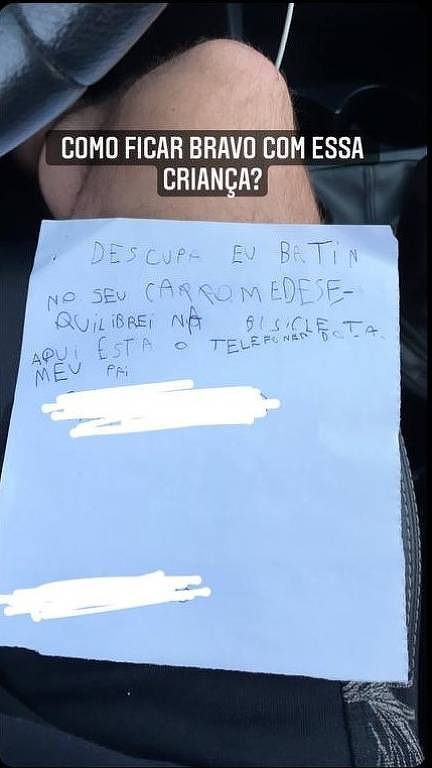 COMO FICAR BRAVO COM ESSA
CRIANÇA?
DESCUPA EU BATIN
NO SEU CARRO MEDESE-
QUILIBREI NA BISICLETA.
AQUI ESTA O TELEFONER DO
MEU PAI